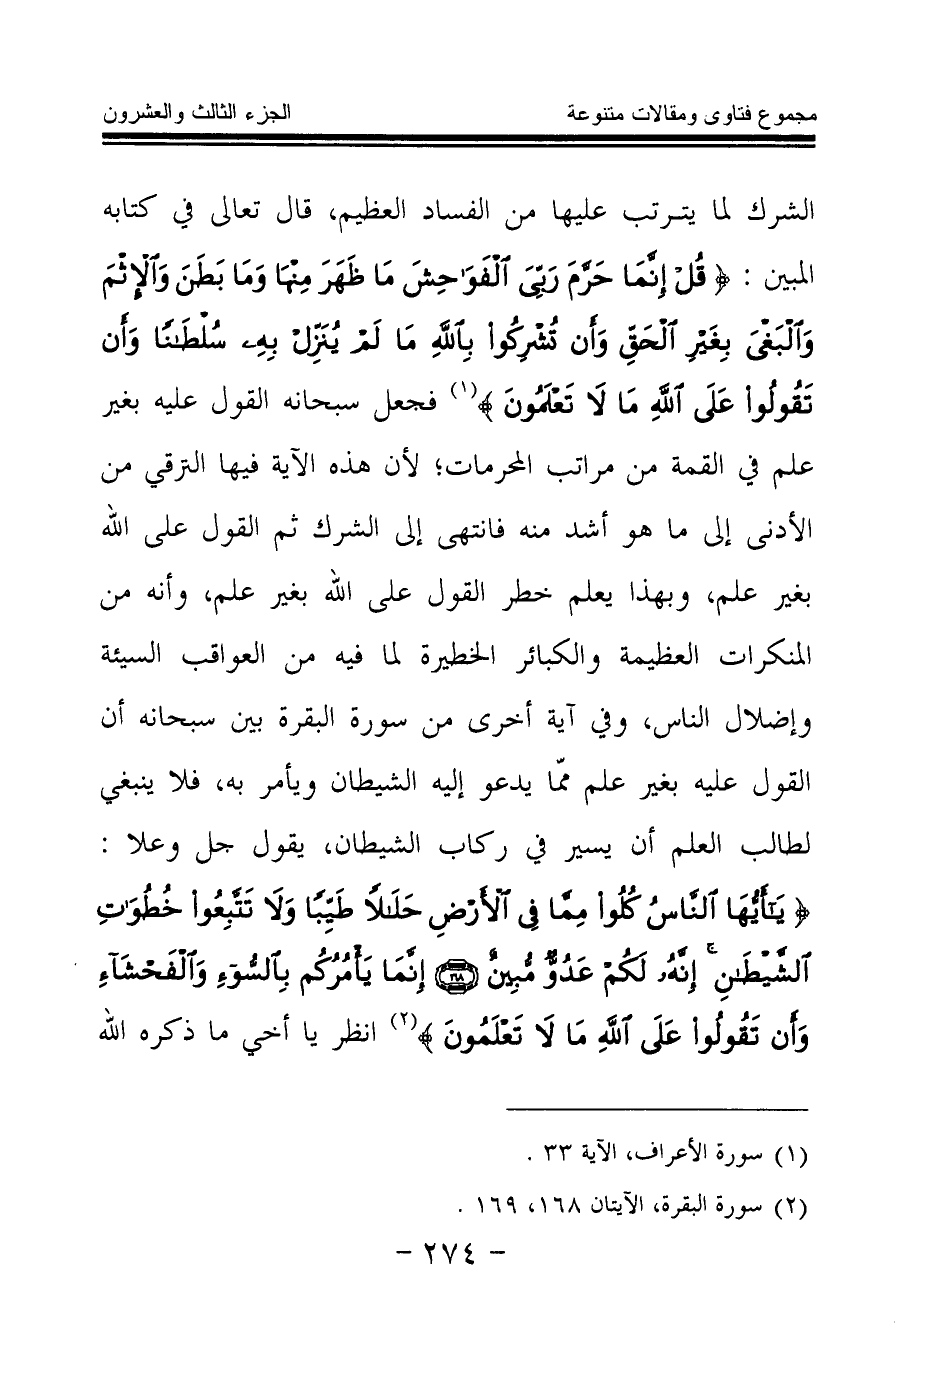 مجموع فتاوى ومقالات متنوعة الجزء الثالث والعشرون
الشرك لما يترتب عليها من الفساد العظيم، قال تعالى في كتابه
المبين : ﴿ قُلْ إِنَّمَا حَرَّمَ رَبِّيَ ٱلْفَوَٰحِشَ مَا ظَهَرَ مِنْهَا وَمَا بَطَنَ وَٱلْإِثْمَ
وَٱلْبَغْىَ بِغَيْرِ ٱلْحَقِّ وَأَن تُشْرِكُوا۟ بِٱللَّهِ مَا لَمْ يُنَزِّلْ بِهِۦ سُلْطَٰنًا وَأَن
تَقُولُوا۟ عَلَى ٱللَّهِ مَا لَا تَعْلَمُونَ ﴾(١) فجعل سبحانه القول عليه بغير
علم في القمة من مراتب المحرمات؛ لأن هذه الآية فيها الترقي من
الأدنى إلى ما هو أشد منه فانتهى إلى الشرك ثم القول على الله
بغير علم، وبهذا يعلم خطر القول على الله بغير علم، وأنه من
المنكرات العظيمة والكبائر الخطيرة لما فيه من العواقب السيئة
وإضلال الناس، وفي آية أخرى من سورة البقرة بين سبحانه أن
القول عليه بغير علم ممّا يدعو إليه الشيطان ويأمر به، فلا ينبغي
لطالب العلم أن يسير في ركاب الشيطان، يقول جل وعلا :
﴿ يَٰٓأَيُّهَا ٱلنَّاسُ كُلُوا۟ مِمَّا فِى ٱلْأَرْضِ حَلَٰلًا طَيِّبًا وَلَا تَتَّبِعُوا۟ خُطُوَٰتِ
ٱلشَّيْطَٰنِ ۚ إِنَّهُۥ لَكُمْ عَدُوٌّ مُّبِينٌ ﴿١٦٨﴾ إِنَّمَا يَأْمُرُكُم بِٱلسُّوٓءِ وَٱلْفَحْشَآءِ
وَأَن تَقُولُوا۟ عَلَى ٱللَّهِ مَا لَا تَعْلَمُونَ ﴾(٢) انظر يا أخي ما ذكره الله
(١) سورة الأعراف، الآية ٣٣ .
(٢) سورة البقرة، الآيتان ١٦٨، ١٦٩ .
- ٢٧٤ -